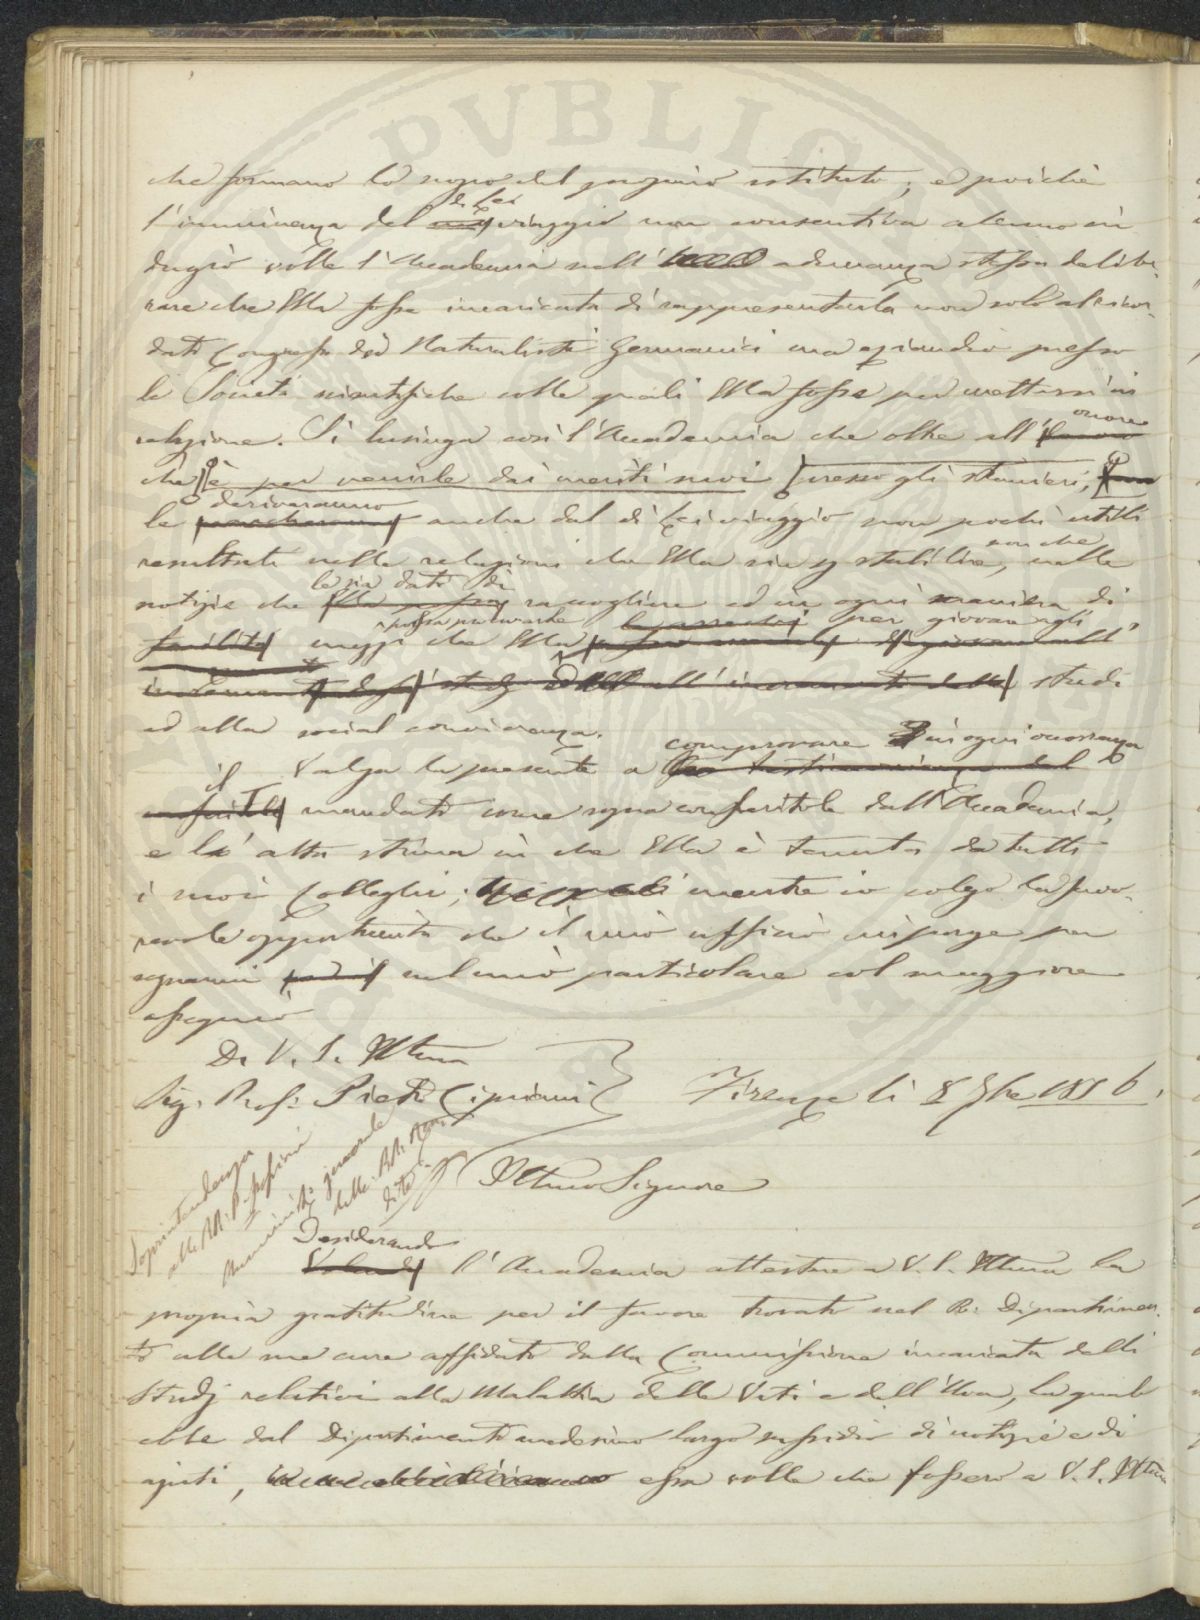 che formano lo scopo del proprio istituto; e poichè
l'imminenza del di Lei viaggio non consentiva alcuno in
dugio volle l'Accademia nell' adunanza stessa delibe-
rare che Ella fosse incaricata di rappresentarla non solo al ricor-
dato Congresso dei Naturalisti Germanici ma eziandio presso
le Società scientifiche colle quali Ella fosse per mettersi in
relazione. Si lusinga così l'Accademia che oltre all' onore
che è per venirle dai meriti suoi presso gli stranieri,
le deriveranno anche dal di Lei viaggio non pochi utili
resultati nelle relazioni che Ella sia per stabilire, non che nelle
notizie che le sia dato di raccogliere ed in ogni maniera di
mezzi che Ella possa procurarle per giovare agli
studi
ed alla social convivenza.
Valga la presente a comprovare in ogni occorrenza
il mandato come sopra conferitole dall'Accademia,
e l' alta stima in che Ella è tenuta da tutti
i suoi Colleghi; mentre io colgo la favo-
revole opportunità che il mio ufficio mi porge per
segnarmi nel mio particolare col maggiore
ossequio
Di V. S. Illma
Sig. Prof. Pietro Cipriani
Firenze li 8 7bre 1856.
Soprintendenza
alle RR. Possessioni
Amministr. generale
delle RR. Ren
dite
Illmo Signore
Desiderando l'Accademia attestare a V. S. Illma la
propria gratitudine per il favore trovato nel R. Dipartimen-
to alle sue cure affidato dalla Commissione incaricata delli
Studj relativi alla Malattia delle Viti e dell'Uva, la quale
ebbe dal Dipartimento medesimo largo sussidio di notizie e di
ajuti, essa volle che fossero a V. S. Illma